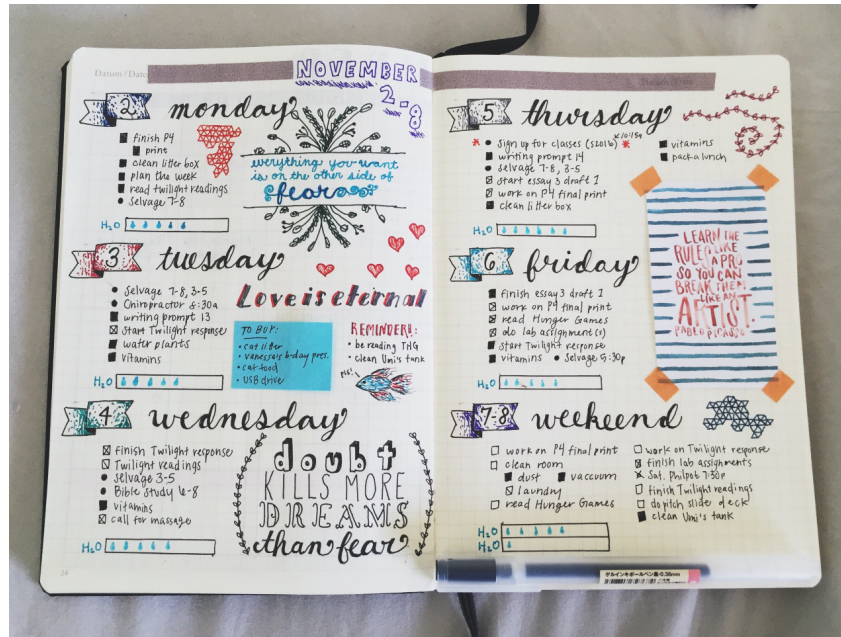 Datum/Date
NOVEMBER
2-8
2 monday
finish P4
print
clean litter box
plan the week
read twilight readings
Selvage 7-8
H₂O
everything you want
is on the other side of
fear
3 tuesday
Selvage 7-8, 3-5
Chiropractor 8:30a
writing prompt 13
start Twilight response
water plants
vitamins
H₂O
Love is eternal
TO BUY:
cat litter
vanessa's b-day pres.
cat food
USB drive
REMINDER!:
be reading THG
clean Umi's tank
4 wednesday
finish Twilight response
Twilight readings
selvage 3-5
Bible Study 6-8
vitamins
call for massage
H₂O
doubt
KILLS MORE
DREAMS
than fear
24
5 thursday
Sign up for classes (S2016)
writing prompt 14
selvage 7-8, 3-5
start essay 3 draft 1
work on P4 final print
clean litter box
vitamins
pack a lunch
H₂O
6 friday
finish essay 3 draft 1
work on P4 final print
read Hunger Games
do lab assignment(s)
start Twilight response
vitamins • Selvage 5:30p
H₂O
LEARN THE
RULES LIKE
A PRO
SO YOU CAN
BREAK THEM
LIKE AN
ARTIST.
PABLO PICASSO
7-8 weekend
work on P4 final print
clean room
dust vaccuum
laundry
read Hunger Games
work on Twilight response
finish lab assignments
Sat. Philpot 7:30p
finish Twilight readings
do pitch slide deck
clean Umi's tank
H₂O
H₂O
ゲルインキボールペン 0.38mm